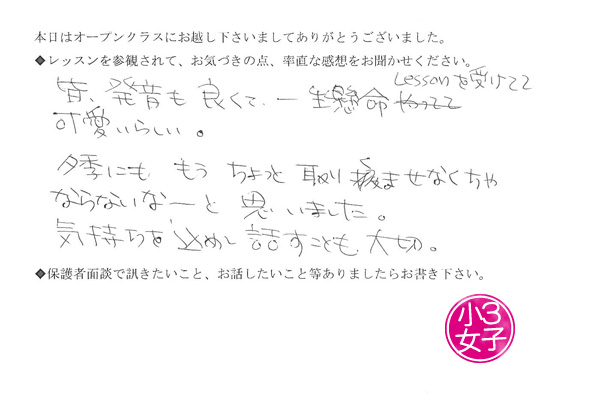 本日はオープンクラスにお越し下さいましてありがとうございました。
◆レッスンを参観されて、お気づきの点、率直な感想をお聞かせください。
皆、発音も良くて、一生懸命 Lessonを受けてて
可愛いらしい。
夕季にも もう ちょっと 取り組ませなくちゃ
ならないなーと 思いました。
気持ちを込めて 話すことも 大切。
◆保護者面談で訊きたいこと、お話したいこと等ありましたらお書き下さい。
小3
女子